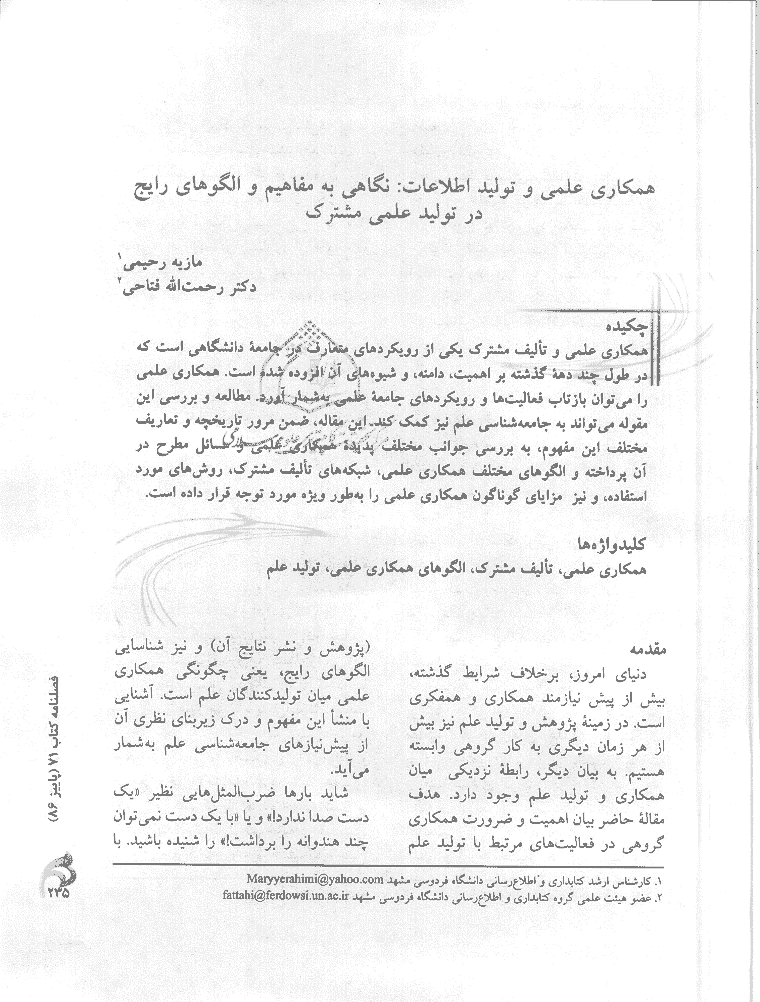 همکاری علمی و تولید اطلاعات: نگاهی به مفاهیم و الگوهای رایج
در تولید علمی مشترک
مازیه رحیمی۱
دکتر رحمت‌الله فتاحی۲
چکیده
همکاری علمی و تألیف مشترک یکی از رویکردهای متعارف در جامعهٔ دانشگاهی است که
در طول چند دههٔ گذشته بر اهمیت، دامنه، و شیوه‌های آن افزوده شده است. همکاری علمی
را می‌توان بازتاب فعالیت‌ها و رویکردهای جامعهٔ علمی به‌شمار آورد. مطالعه و بررسی این
مقوله می‌تواند به جامعه‌شناسی علم نیز کمک کند. این مقاله، ضمن مرور تاریخچه و تعاریف
مختلف این مفهوم، به بررسی جوانب مختلف پدیدهٔ همکاری علمی و مسائل مطرح در
آن پرداخته و الگوهای مختلف همکاری علمی، شبکه‌های تألیف مشترک، روش‌های مورد
استفاده، و نیز مزایای گوناگون همکاری علمی را به‌طور ویژه مورد توجه قرار داده است.
کلیدواژه‌ها
همکاری علمی، تألیف مشترک، الگوهای همکاری علمی، تولید علم
مقدمه
دنیای امروز، برخلاف شرایط گذشته،
بیش از پیش نیازمند همکاری و همفکری
است. در زمینهٔ پژوهش و تولید علم نیز بیش
از هر زمان دیگری به کار گروهی وابسته
هستیم. به بیان دیگر، رابطهٔ نزدیکی میان
همکاری و تولید علم وجود دارد. هدف
مقالهٔ حاضر بیان اهمیت و ضرورت همکاری
گروهی در فعالیت‌های مرتبط با تولید علم
(پژوهش و نشر نتایج آن) و نیز شناسایی
الگوهای رایج، یعنی چگونگی همکاری
علمی میان تولیدکنندگان علم است. آشنایی
با منشأ این مفهوم و درک زیربنای نظری آن
از پیش‌نیازهای جامعه‌شناسی علم به‌شمار
می‌آید.
شاید بارها ضرب‌المثل‌هایی نظیر «یک
دست صدا ندارد!» و یا «با یک دست نمی‌توان
چند هندوانه را برداشت!» را شنیده باشید. با
۱. کارشناس ارشد کتابداری و اطلاع‌رسانی دانشگاه فردوسی مشهد Maryyerahimi@yahoo.com
۲. عضو هیئت علمی گروه کتابداری و اطلاع‌رسانی دانشگاه فردوسی مشهد fattahi@ferdowsi.un.ac.ir
فصلنامه کتاب ۷۱ (پاییز ۸۶)
۲۳۵